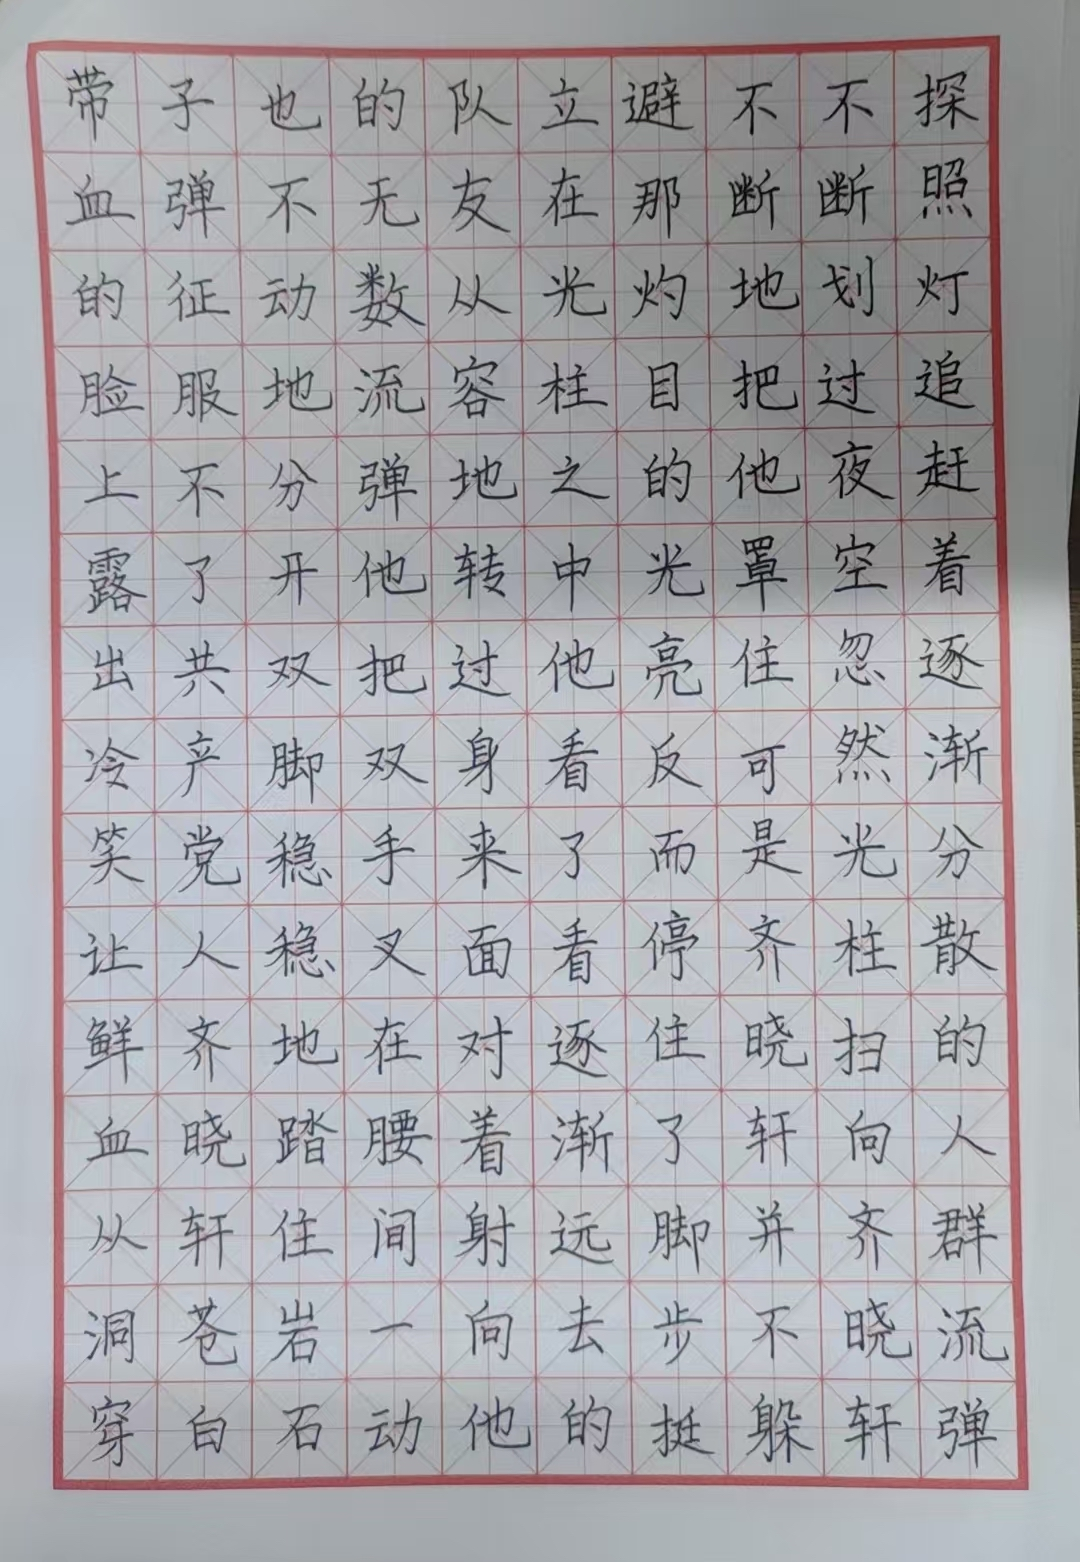 探照灯追赶着逐渐分散的人群流弹
不断划过夜空忽然光柱扫向齐晓轩
不断地把他罩住可是齐晓轩并不躲
避那灼目的光亮反而停住了脚步挺
立在光柱之中他看了看逐渐远去的
队友从容地转过身来面对着射向他
的无数流弹他把双手叉在腰间一动
也不动地分开双脚稳稳地踏住岩石
子弹征服不了共产党人齐晓轩苍白
带血的脸上露出冷笑让鲜血从洞穿